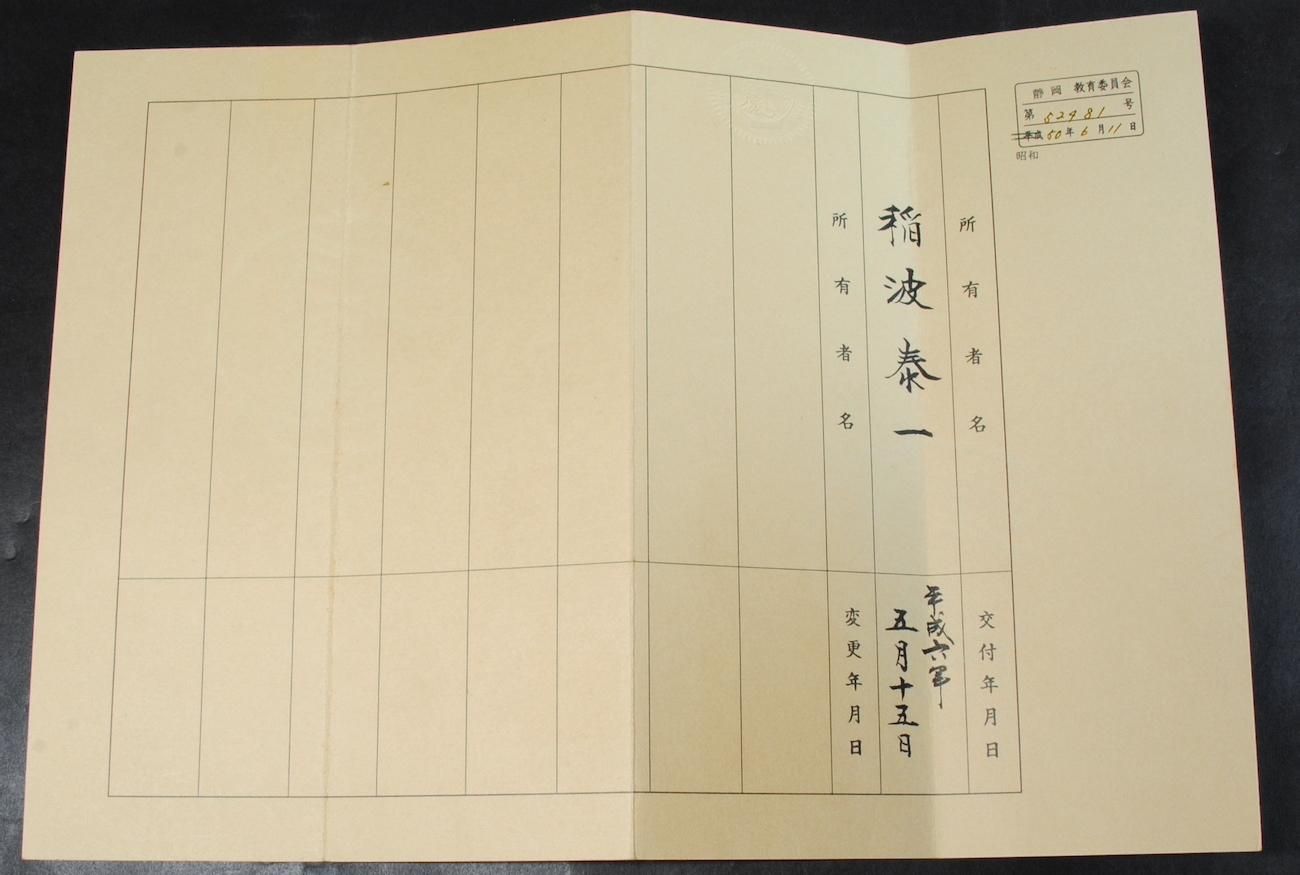 静岡 教育委員会
第 52981 号
平成 50年 6月11日
昭和
所有者名
交付年月日
稲波泰一
平成六年
五月十五日
所有者名
変更年月日